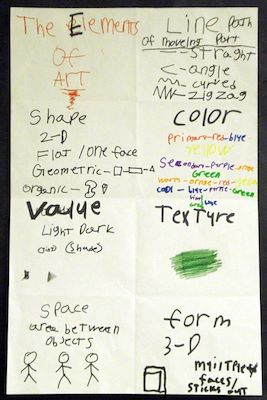 The Elements
Of
ART
Line Path
Of moveing Part
straght
angle
curved
zig zag
Shape
2-D
Flat / one face
Geometric
organic
Color
primary-red-blue
yellow
Green
worm - ornge - red -
cool - blue - purple - Green
Value
Light Dark
and (shades)
Texture
Space
area between
objects
form
3-D
faces/
sticks out